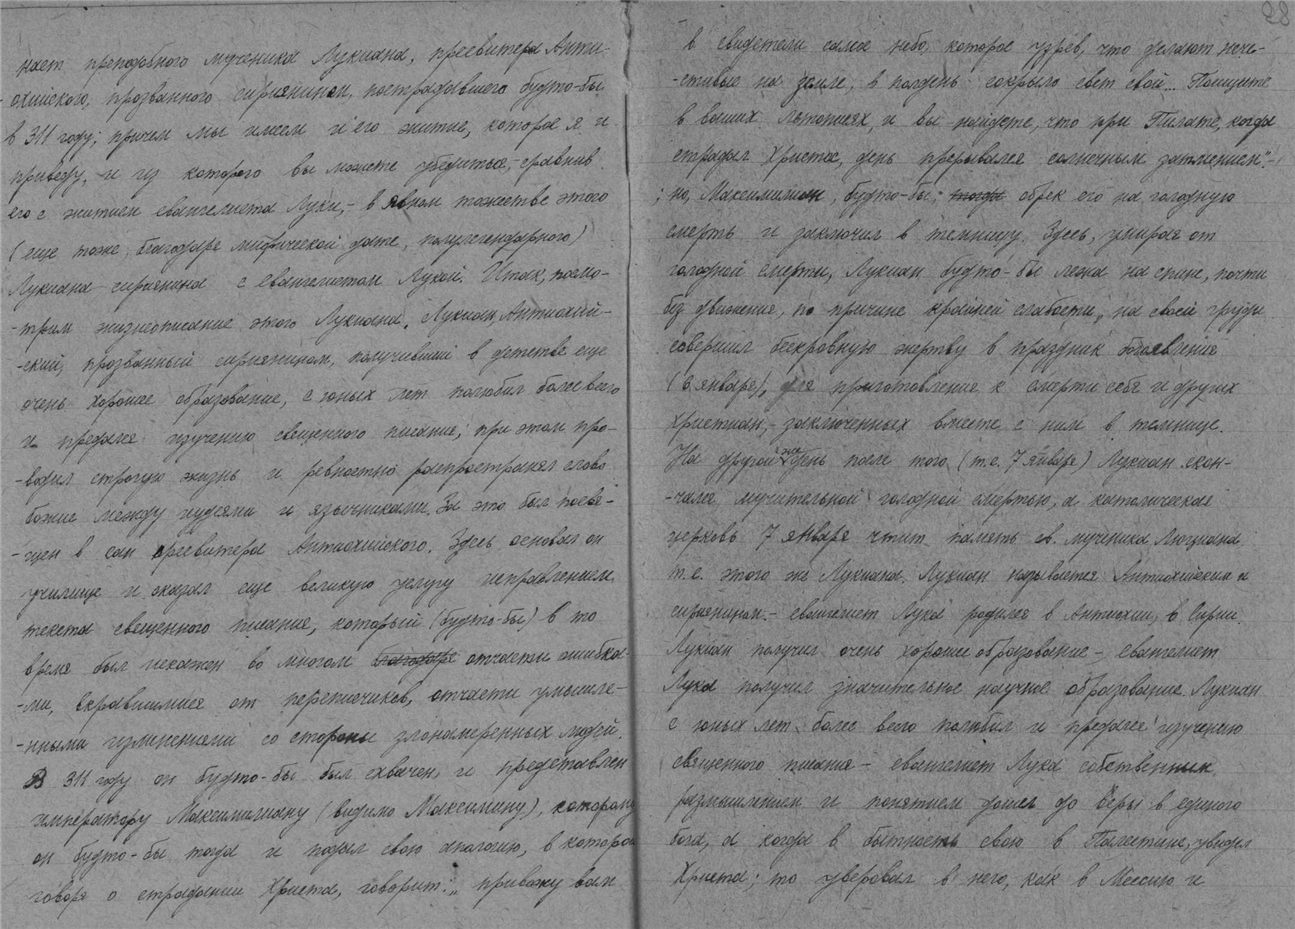 нает преподобного мученика Лукиана, пресвитера Анти-
-охийского, прозванного сириянином, пострадавшего будто-бы
в 311 году; причем мы имеем и его житие, которое я и
приведу, и из которого вы можете убедиться, сравнив
его с житием евангелиста Луки, - в явном тожестве этого
(еще тоже, благодаря мифической дате, полулегендарного)
Лукиана-сириянина с евангелистом Лукой. Итак, посмо-
-трим жизнеописание этого Лукиана. Лукиан, Антиохий-
-ский, прозванный сириянином, получивший в детстве еще
очень хорошее образование, с юных лет полюбил более всего
и предался изучению священного писания; при этом про-
-водил строгую жизнь и ревностно распространял слово
божие между иудеями и язычниками. За это был посвя-
-щен в сан пресвитера Антиохийского. Здесь основал он
училище и оказал еще великую услугу исправлением
текста священного писания, который (будто-бы) в то
время был искажен во многом благодаря отчасти ошибка-
-ми, вкравшимися от переписчиков, отчасти умышле-
-нными изменениями со стороны злонамеренных людей.
В 311 году он будто-бы был схвачен и представлен
императору Максимилиану (видимо Максимину), которому
он будто-бы тогда и подал свою апологию, в которой
говоря о страдании Христа, говорит: „привожу вам
28
в свидетели самое небо, которое узрев, что делают нече-
-стивые на земле, в полдень сокрыло свет свой... Поищите
в ваших летописях, и вы найдете, что при Пилате, когда
страдал Христос, день прерывался солнечным затмением". -
; но, Максимилиан, будто-бы, тогда обрек его на голодную
смерть и заключил в темницу. Здесь, умирая от
голодной смерти, Лукиан будто-бы лежа на спине, почти
без движения, по причине крайней слабости, на своей груди
совершил бескровную жертву в праздник богоявления
(6 января), для приготовления к смерти себя и других
христиан, - заключенных вместе с ним в темнице.
На другой же день после того (т.е. 7 января) Лукиан скон-
-чался мучительной голодной смертью, а католическая
церковь 7 января чтит память св. мученика Люциана,
т.е. этого же Лукиана. Лукиан называется Антиохийским и
сириянином. - евангелист Лука родился в Антиохии, в Сирии.
Лукиан получил очень хорошее образование - евангелист
Лука получил значительное научное образование. Лукиан
с юных лет более всего полюбил и предался изучению
священного писания - евангелист Лука собственным
размышлением и понятием дошел до веры в единого
бога, а когда в бытность свою в Палестине, увидел
Христа; то уверовал в него, как в Мессию и